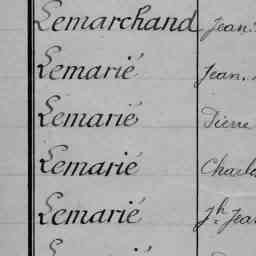 Lemarchand Jean
Lemarié Jean,
Lemarié Pierre
Lemarié
Lemarié Jh Jea